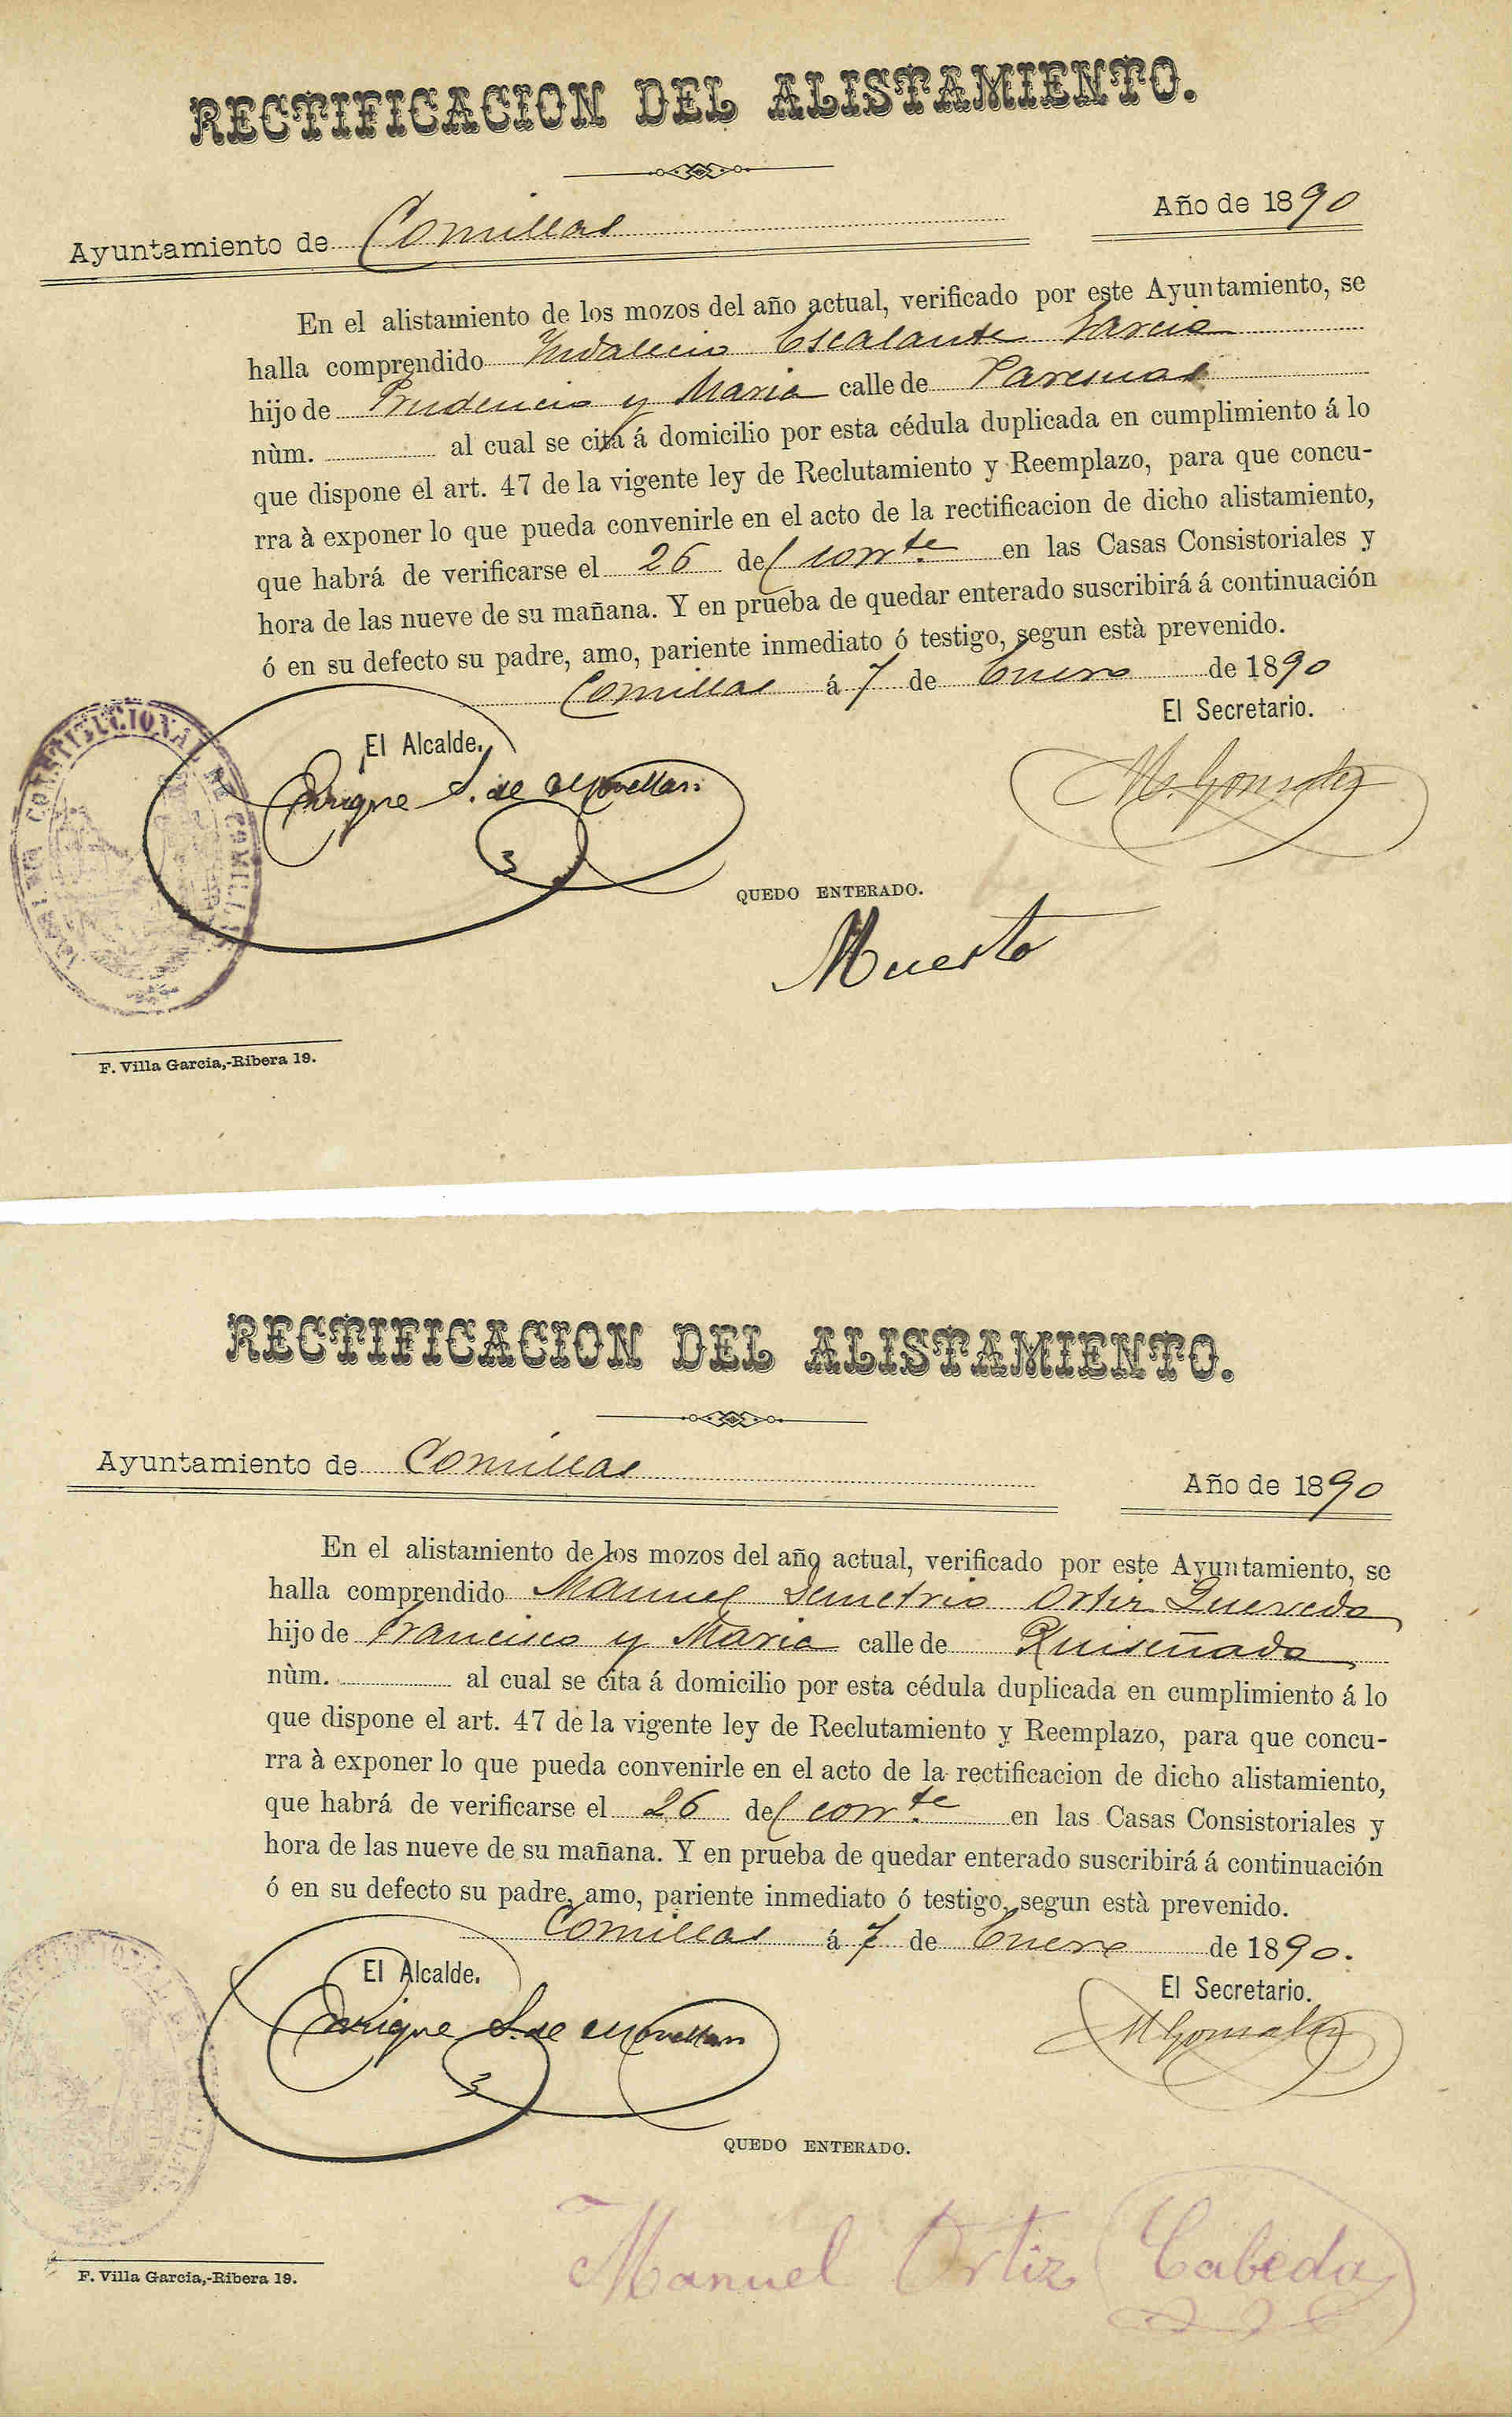 RECTIFICACION DEL ALISTAMIENTO.
Ayuntamiento de Comillas
Año de 1890
En el alistamiento de los mozos del año actual, verificado por este Ayuntamiento, se
halla comprendido Indalecio Escalante Garcia
hijo de Prudencio y Maria calle de
nùm. al cual se cita á domicilio por esta cédula duplicada en cumplimiento á lo
que dispone el art. 47 de la vigente ley de Reclutamiento y Reemplazo, para que concu-
rra à exponer lo que pueda convenirle en el acto de la rectificacion de dicho alistamiento,
que habrá de verificarse el 26 del corrte. en las Casas Consistoriales y
hora de las nueve de su mañana. Y en prueba de quedar enterado suscribirá á continuación
ó en su defecto su padre, amo, pariente inmediato ó testigo, segun està prevenido.
Comillas á 7 de Enero de 1890
El Alcalde.
El Secretario.
Enrique S. de Movellan
M. Gonzalez
CONSTITUCIONAL DE COMILLAS
QUEDO ENTERADO.
Muerto
F. Villa Garcia,-Ribera 19.
RECTIFICACION DEL ALISTAMIENTO.
Ayuntamiento de Comillas
Año de 1890
En el alistamiento de los mozos del año actual, verificado por este Ayuntamiento, se
halla comprendido Manuel Demetrio Ortiz Quevedo
hijo de Francisco y Maria calle de Ruiseñada
nùm. al cual se cita á domicilio por esta cédula duplicada en cumplimiento á lo
que dispone el art. 47 de la vigente ley de Reclutamiento y Reemplazo, para que concu-
rra à exponer lo que pueda convenirle en el acto de la rectificacion de dicho alistamiento,
que habrá de verificarse el 26 del corrte. en las Casas Consistoriales y
hora de las nueve de su mañana. Y en prueba de quedar enterado suscribirá á continuación
ó en su defecto su padre, amo, pariente inmediato ó testigo, segun està prevenido.
Comillas á 7 de Enero de 1890.
El Alcalde.
El Secretario.
Enrique S. de Movellan
M Gonzalez
QUEDO ENTERADO.
Manuel Ortiz Cabeda
F. Villa Garcia,-Ribera 19.